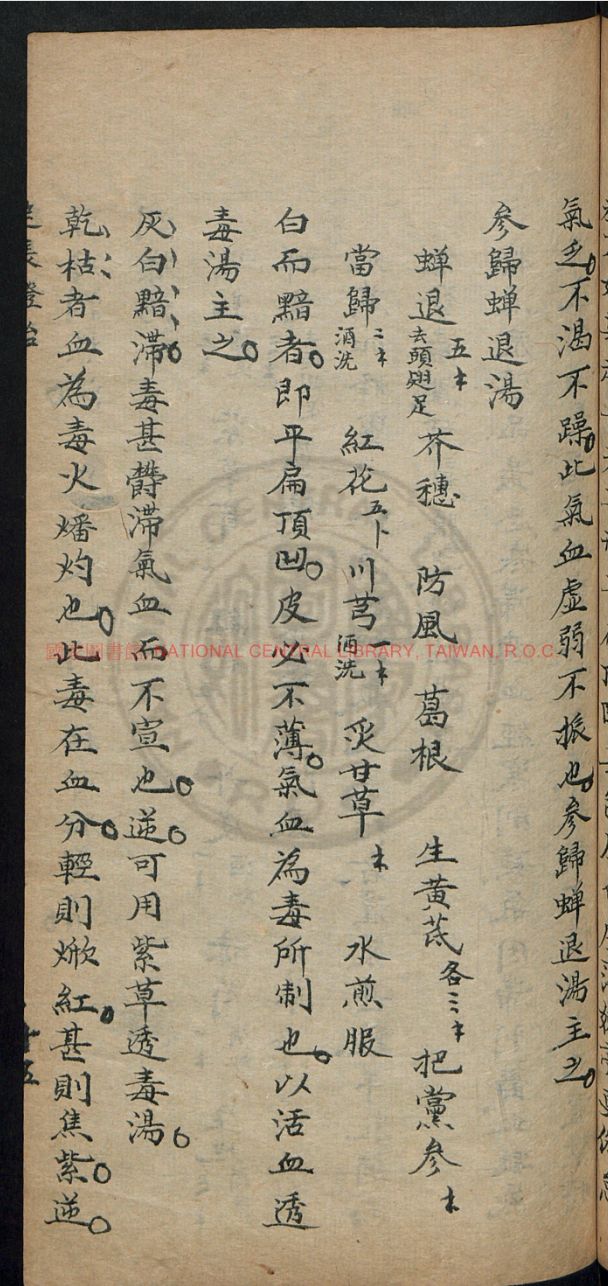 氣乏。不渴不躁。此氣血虛弱不振也。參歸蟬退湯主之。
參歸蟬退湯
蟬退去頭翅足五 芥穗 防風 葛根 生黃芪各三 把黨參
當歸二酒洗 紅花五 川芎一酒洗 炙甘草 水煎服
白而黯者。即平扁頂凹。皮必不薄。氣血為毒所制也。以活血透
毒湯主之。
灰白黯滯。毒甚欝滯氣血而不宣也。逆。可用紫草透毒湯。
乾枯者血為毒火燔灼也。此毒在血分。輕則焮紅。甚則焦紫。逆。
國家圖書館 NATIONAL CENTRAL LIBRARY, TAIWAN, R.O.C